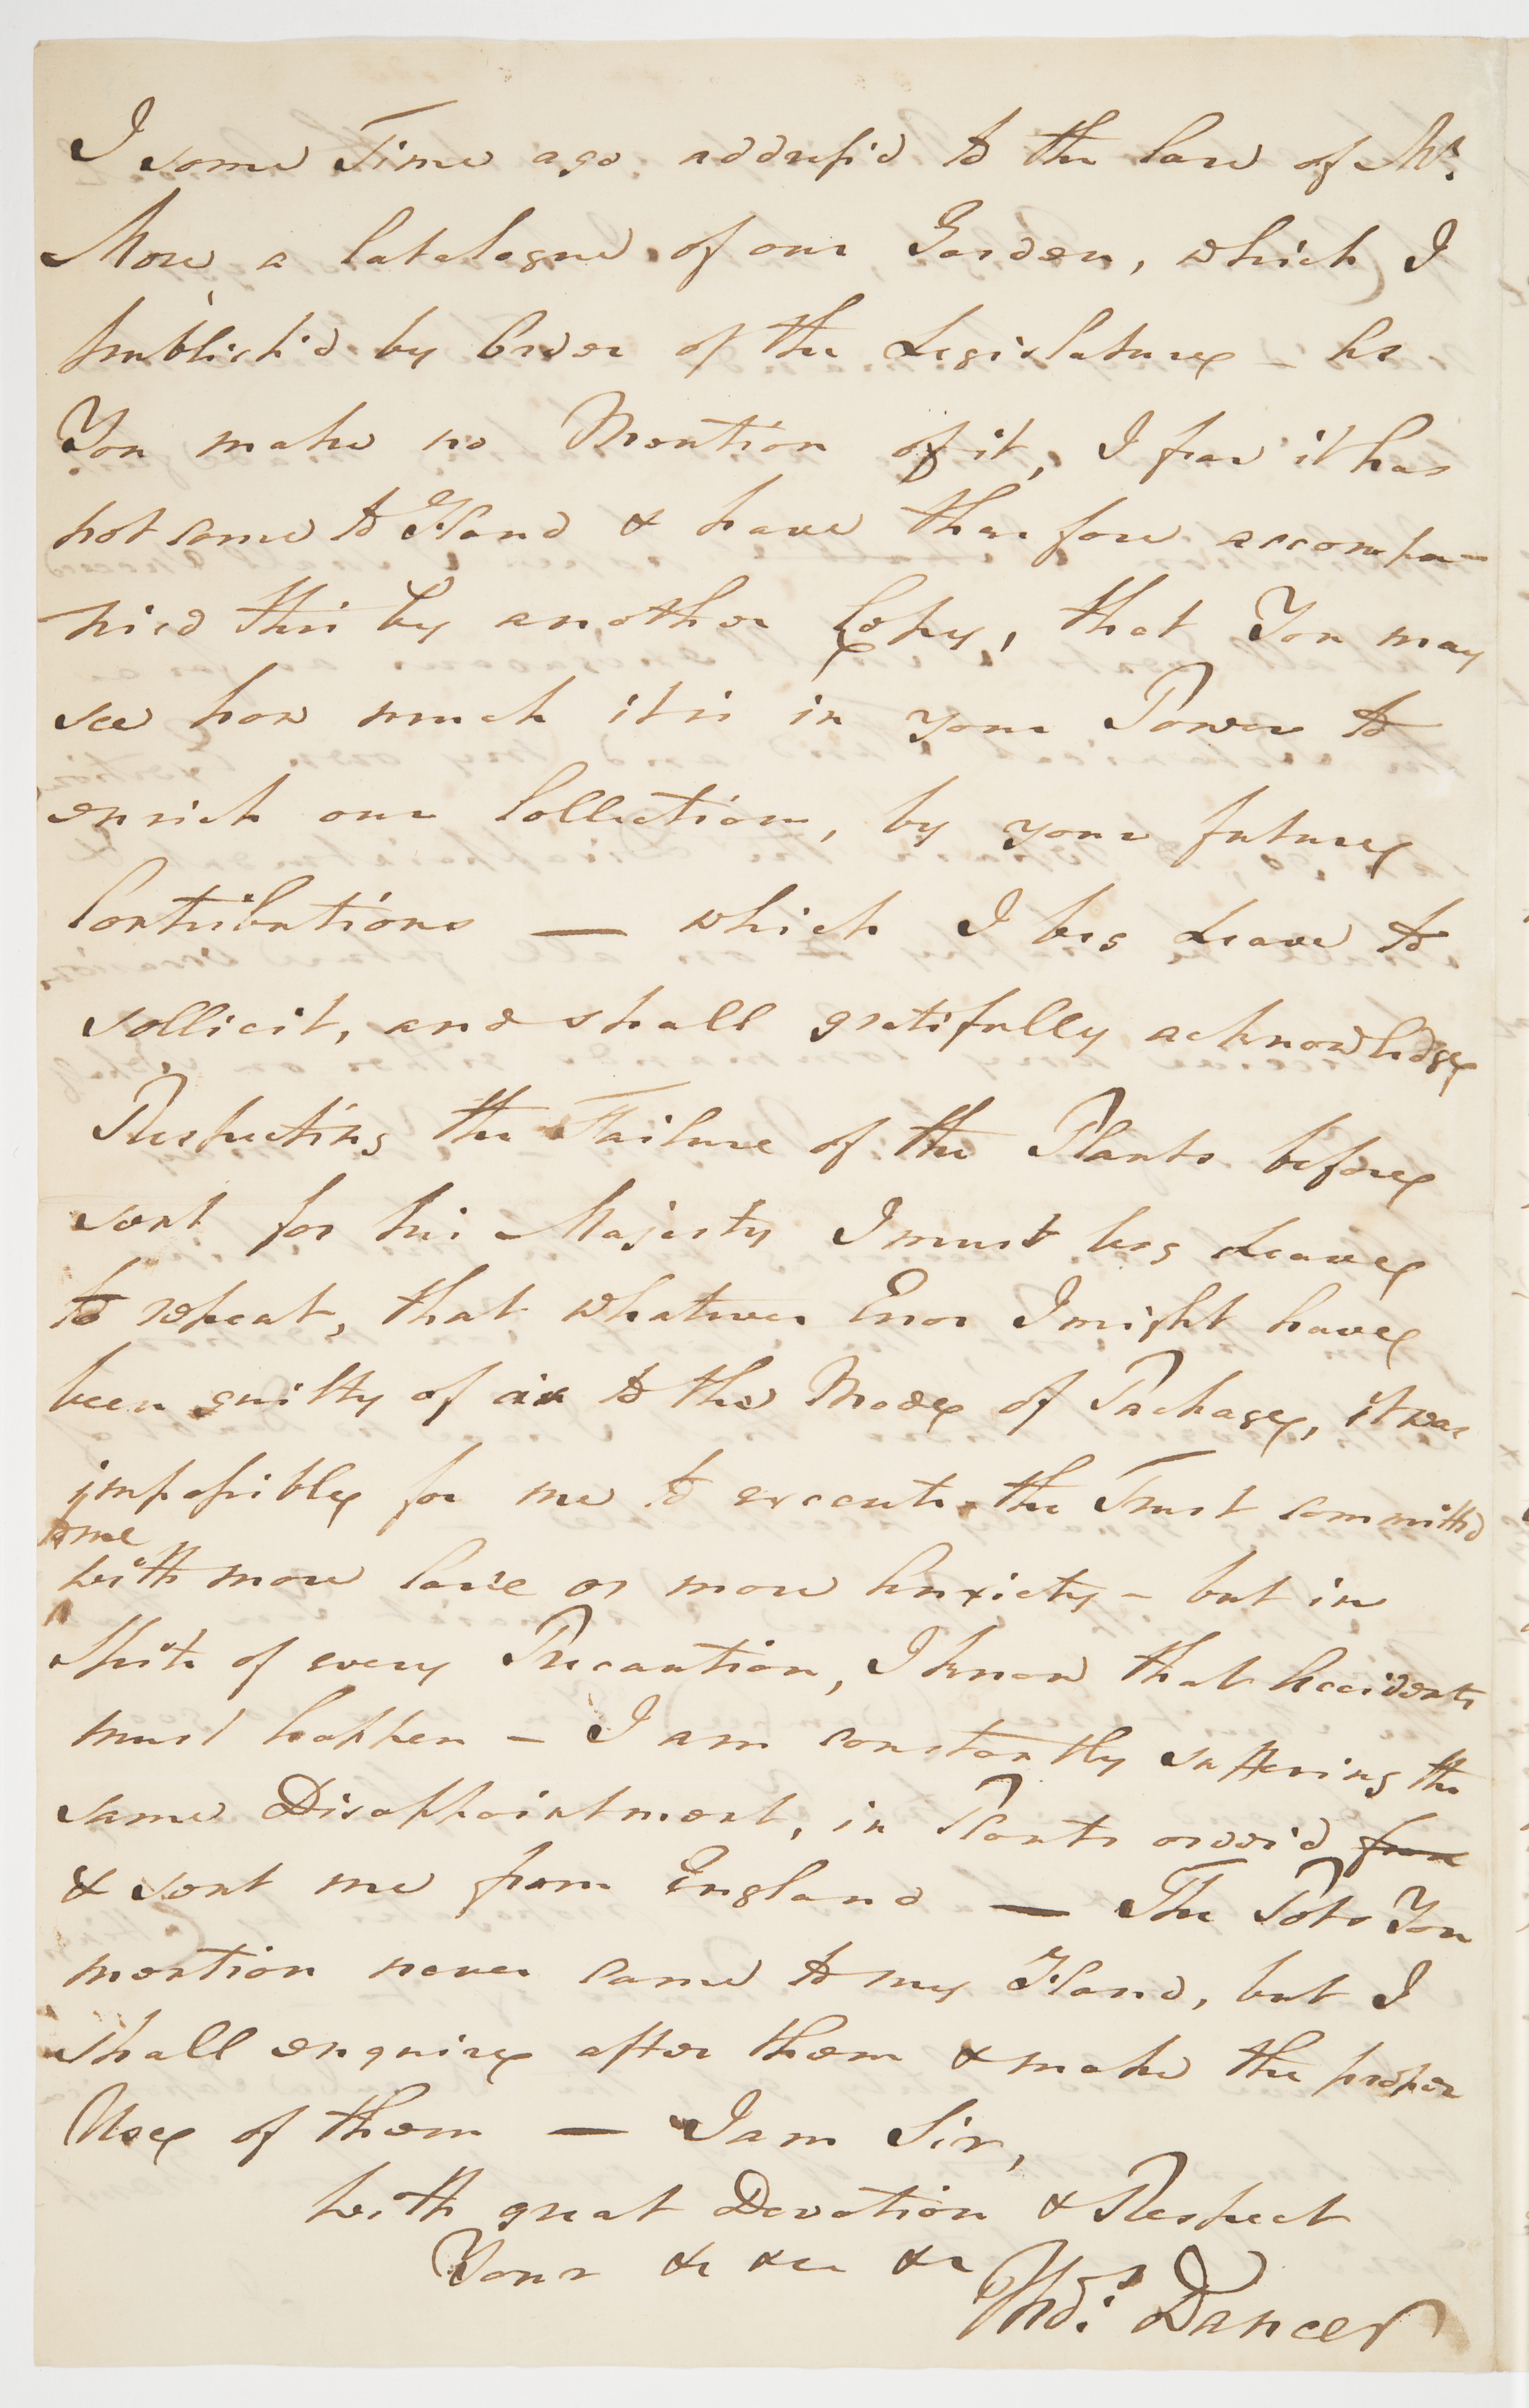 I some Time ago address'd to the Care of Mr.
More, a Catalogue of our Garden, which I
publish'd by Order of the Legislature - As
You make no Mention of it, I fear it has
not come to Hand & have therefore accompa-
nied this by another Copy, that You may
see how much it is in your Power to
enrich our Collection, by your future
Contributions — which I beg Leave to
sollicit, and shall gratifully acknowledge
Respecting the Failure of the Plants before
sent for his Majesty I must beg Leave
to repeat, that whatever Error I might have
been guilty of as to the Mode of Package, it was
impossible for me to execute the Trust committed
to me
with more Care or more Anxiety - but in
Spite of every Precaution, I know that Accidents
must happen - I am constantly suffering the
same Disappointment, in Plants order'd from
& sent me from England — The Pots You
mention never came to my Hand, but I
shall enquire after them & make the proper
Use of them — I am Sir,
with great Devotion & Respect
Your &c &c &c
Thos. Dancer